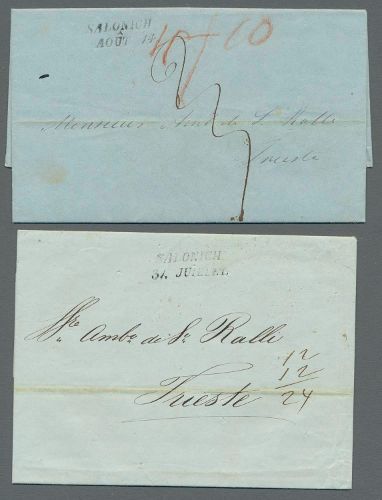 SALONICH
AOÛT 14
10
Monsieur Amb. de S. Ralli
Trieste
SALONICH
31 JUILLET
Amb. de S. Ralli
Trieste
12
12
24